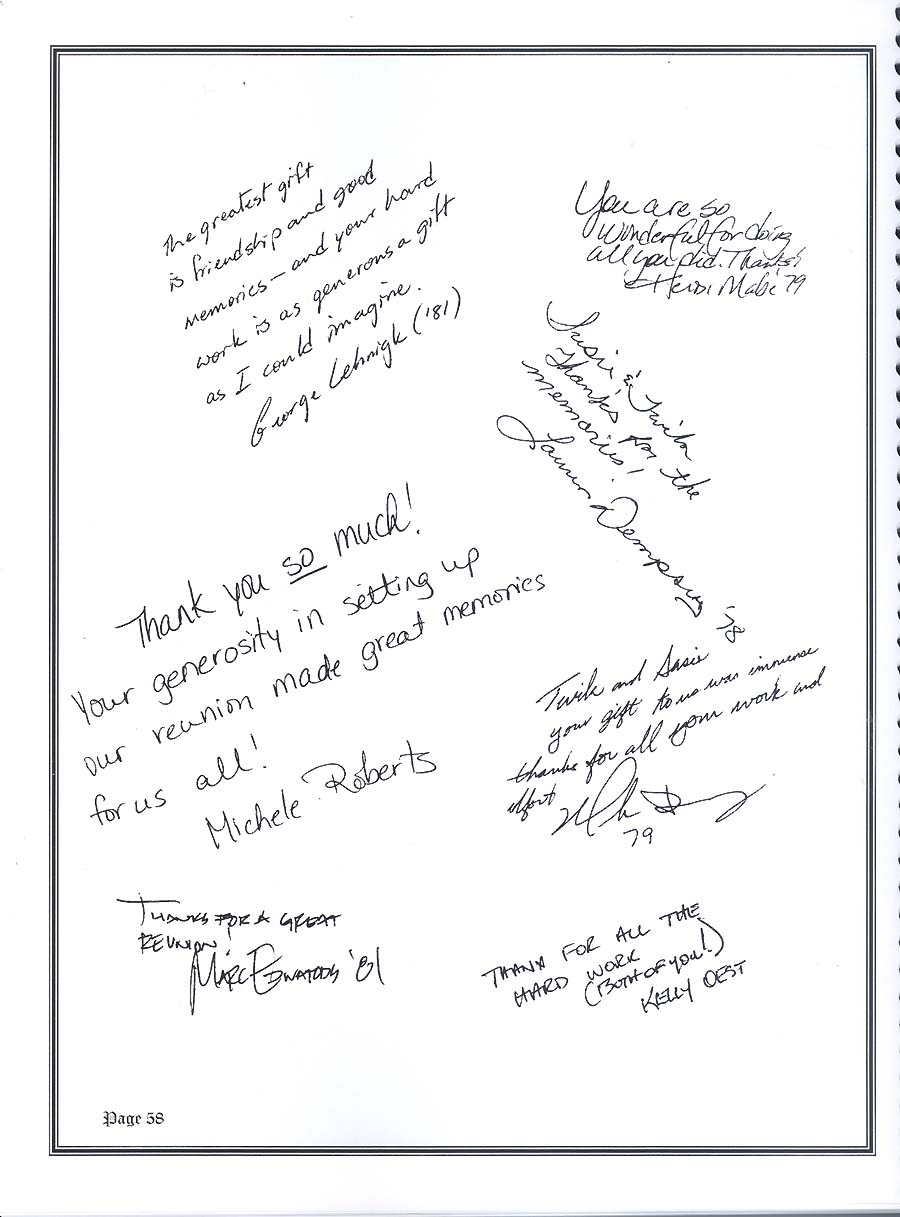 the greatest gift
is friendship and good
memories – and your hard
work is as generous a gift
as I could imagine.
George Lehnigk ('81)
You are so
wonderful for doing
all you did. Thanks!
Heidi Mabe 79
Susie & Twila
Thanks for the
memories!
Dempsey '78
Thank you so much!
Your generosity in setting up
our reunion made great memories
for us all!
Michele Roberts
Twila and Susie
your gift to us was immense
thanks for all your work and
effort
79
THANKS FOR A GREAT
REUNION!
MARC EDWARDS '81
THANX FOR ALL THE
HARD WORK
(BOTH OF YOU!)
KELLY OEST
Page 58